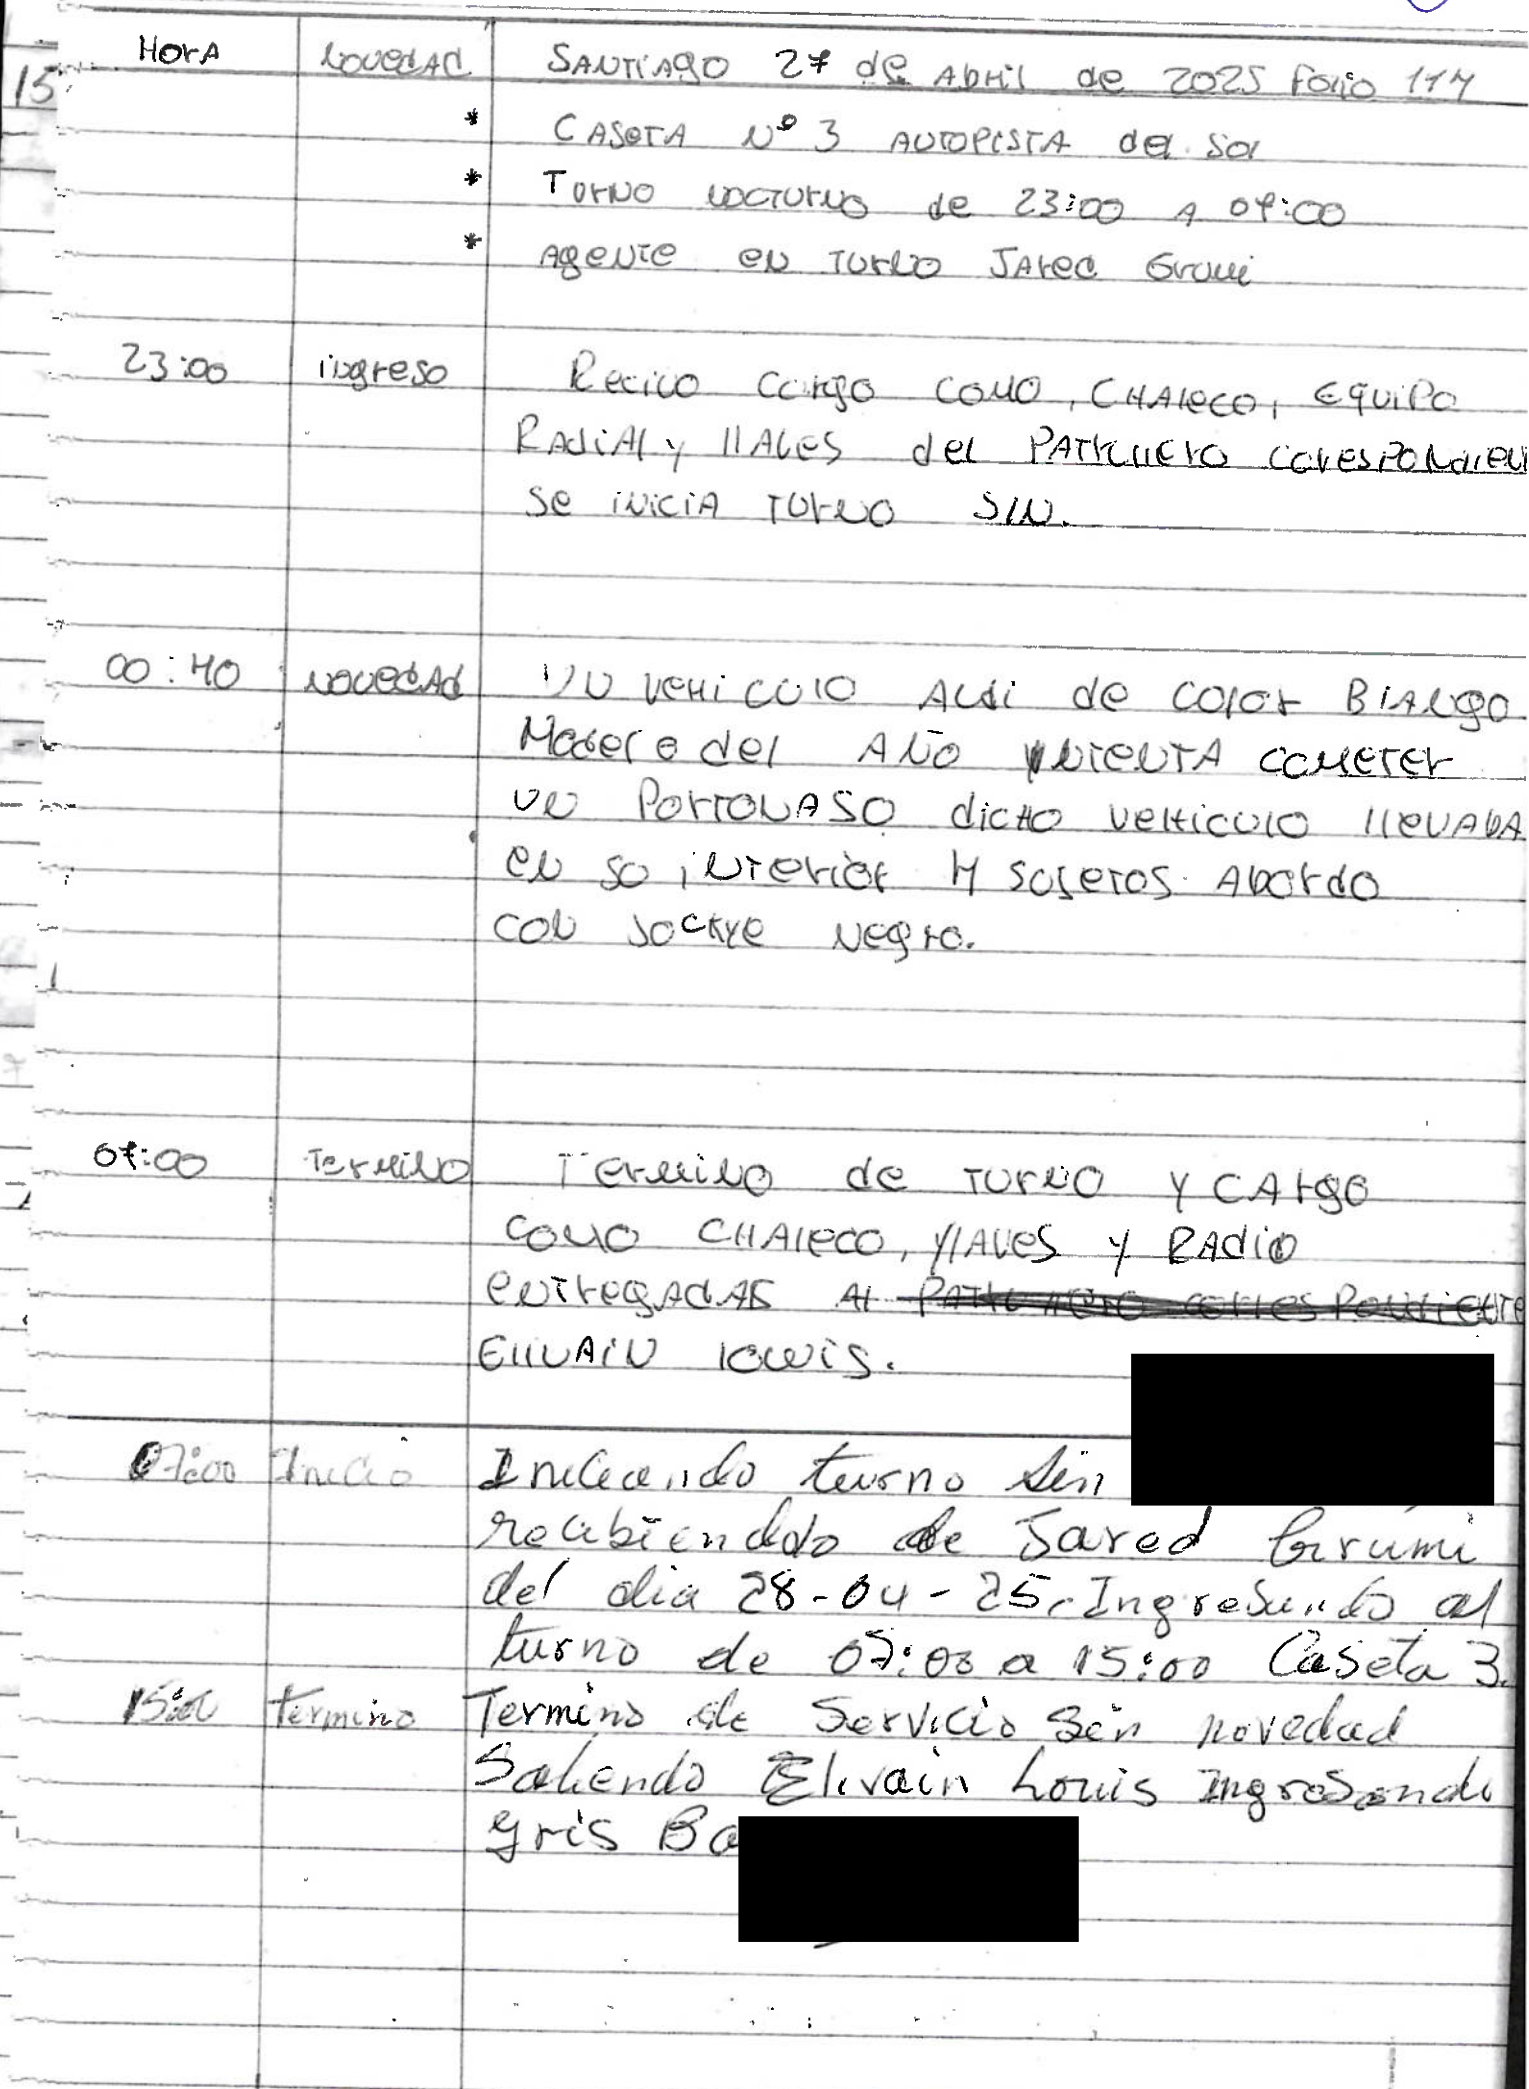 Hora Novedad Santiago 27 de Abril de 2025 Folio 114
15
* Caseta Nº 3 Autopista del Sol
* Turno nocturno de 23:00 a 07:00
* Agente en turno Jared Grumi
23:00 ingreso Recivo cargo como, chaleco, equipo
Radial y llaves del Patrullero
se inicia turno S/N.
00:40 novedad Un vehiculo Audi de color Blanco
Modelo del Año intenta cometer
un Portonaso dicho vehiculo llevaba
en su interior 4 sujetos abordo
con jockye negro.
07:00 Termino Termino de turno y cargo
como chaleco, llaves y Radio
entregadas al Patrullero correspondiente
Ellvain lowis.
07:00 Inicio Iniciando turno sin
recibiendo de Jared Grumi
del dia 28-04-25. Ingresando al
turno de 07:00 a 15:00 Caseta 3.
15:00 termino Termino de Servicio Sin novedad
Saliendo Elivain Louis Ingresando
gris